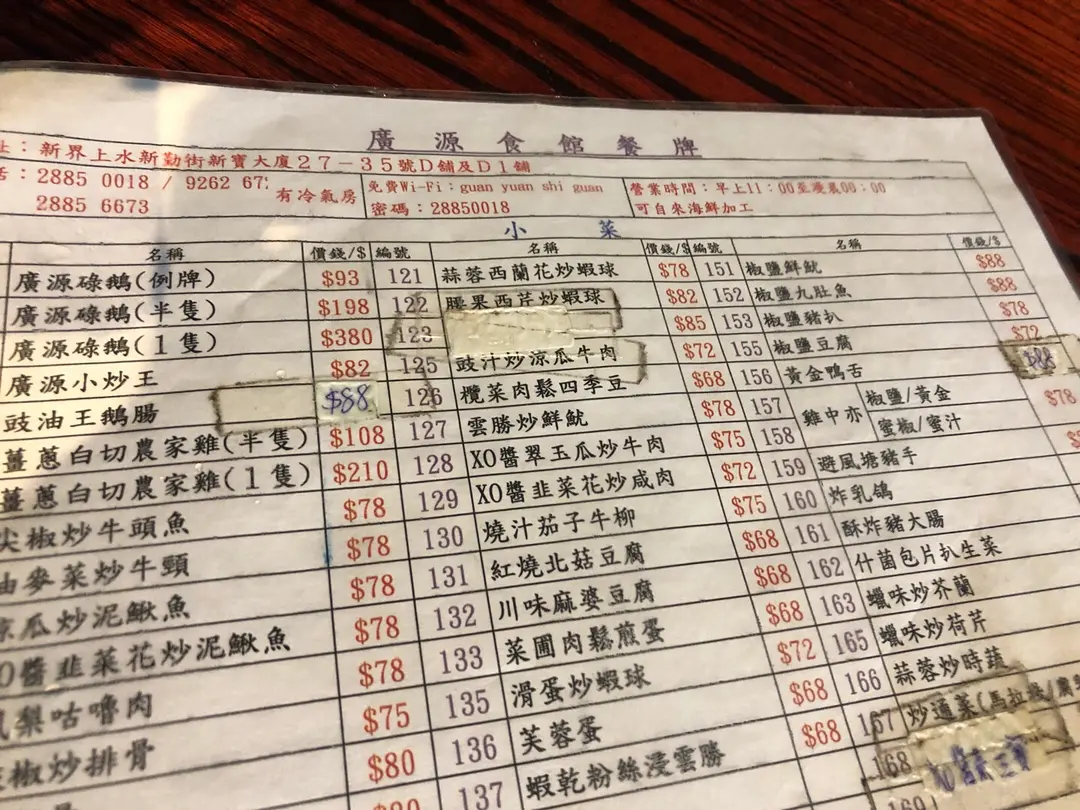 廣源食館餐牌
址：新界上水新勤街新寶大廈27－35號D舖及D1舖
2885 0018 / 9262 67
2885 6673
有冷氣房
免費Wi-Fi：guan yuan shi guan
密碼：28850018
營業時間：早上11：00至凌晨00：00
可自來海鮮加工
小菜
名稱 價錢/$ 編號 名稱 價錢/$ 編號 名稱 價錢/$
廣源碌鵝(例牌) $93
廣源碌鵝(半隻) $198
廣源碌鵝(1隻) $380
廣源小炒王 $82
豉油王鵝腸 $88
薑蔥白切農家雞(半隻) $108
薑蔥白切農家雞(1隻) $210
尖椒炒牛頭魚 $78
油麥菜炒牛頸 $78
涼瓜炒泥鰍魚 $78
XO醬韭菜花炒泥鰍魚 $78
鳳梨咕嚕肉 $78
椒炒排骨 $75
$80
121 蒜蓉西蘭花炒蝦球 $78
122 腰果西芹炒蝦球 $82
123 $85
125 豉汁炒涼瓜牛肉 $72
126 欖菜肉鬆四季豆 $68
127 雲勝炒鮮魷 $78
128 XO醬翠玉瓜炒牛肉 $75
129 XO醬韭菜花炒咸肉 $72
130 燒汁茄子牛柳 $75
131 紅燒北菇豆腐 $68
132 川味麻婆豆腐 $68
133 菜圃肉鬆煎蛋 $68
135 滑蛋炒蝦球 $72
136 芙蓉蛋 $68
137 蝦乾粉絲浸雲勝 $68
151 椒鹽鮮魷 $88
152 椒鹽九肚魚 $88
153 椒鹽豬扒 $78
155 椒鹽豆腐 $72
156 黃金鴨舌 $88
157 雞中亦 椒鹽/黃金 $78
158 蜜椒/蜜汁
159 避風塘豬手
160 炸乳鴿
161 酥炸豬大腸
162 什菌包片扒生菜
163 蠟味炒芥蘭
165 蠟味炒荷芹
166 蒜蓉炒時蔬
167 炒通菜(馬拉
168
169